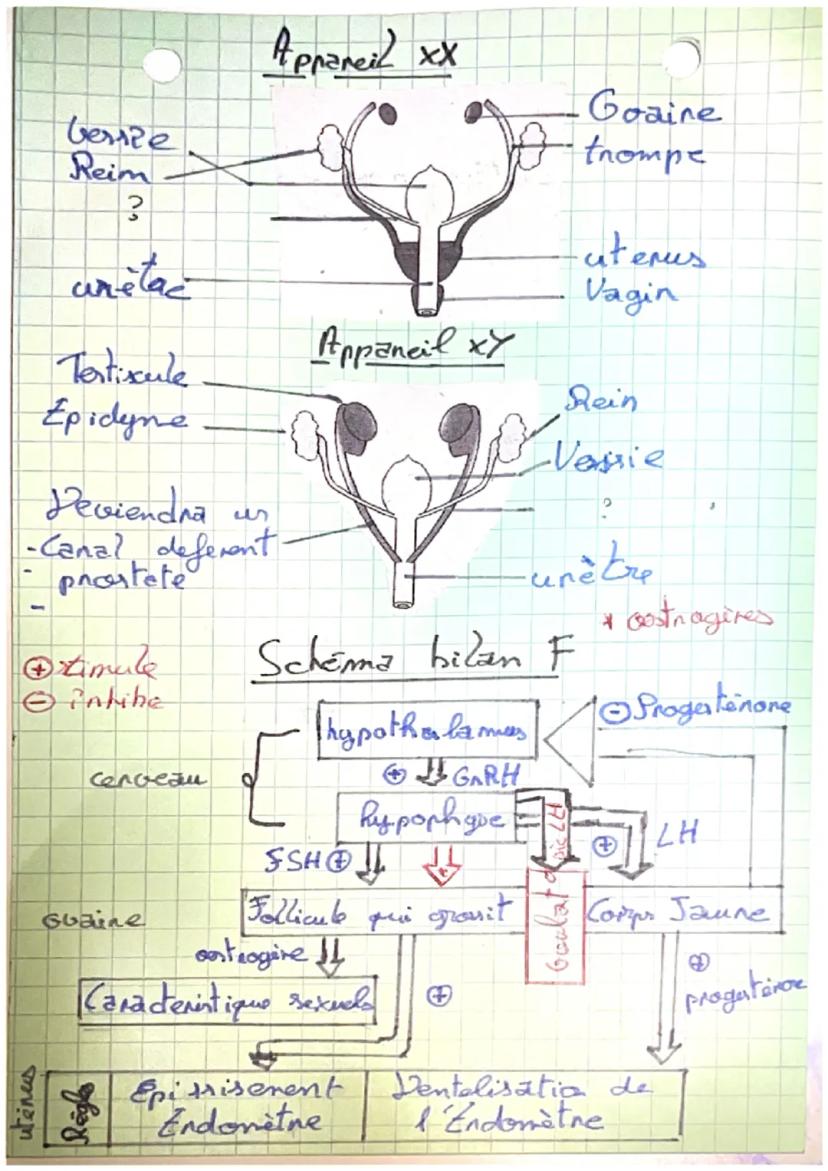 Appareil XX
Vessie
Rein
?
urètre
Ovaire
trompe
uterus
Vagin
Appareil XY
Testicule
Epidyme
Deviendra un
- Canal deferent
- prostete
-
Rein
Vessie
?
urètre
* oestrogères
Schéma bilan F
⊕ stimule
⊖ inhibe
cerveau
hypothalamus
⊖ Progesténone
⊕ GnRH
hypophyse
pic LH
⊕ LH
FSH ⊕
*
ovaire
Follicule qui grossit
Corps Jaune
oestrogère
⊕
Caracteristique sexuels
⊕
progesténone
utérus
Règles
Epissisement
Endomètre
Dentelisation de
l'Endomètre